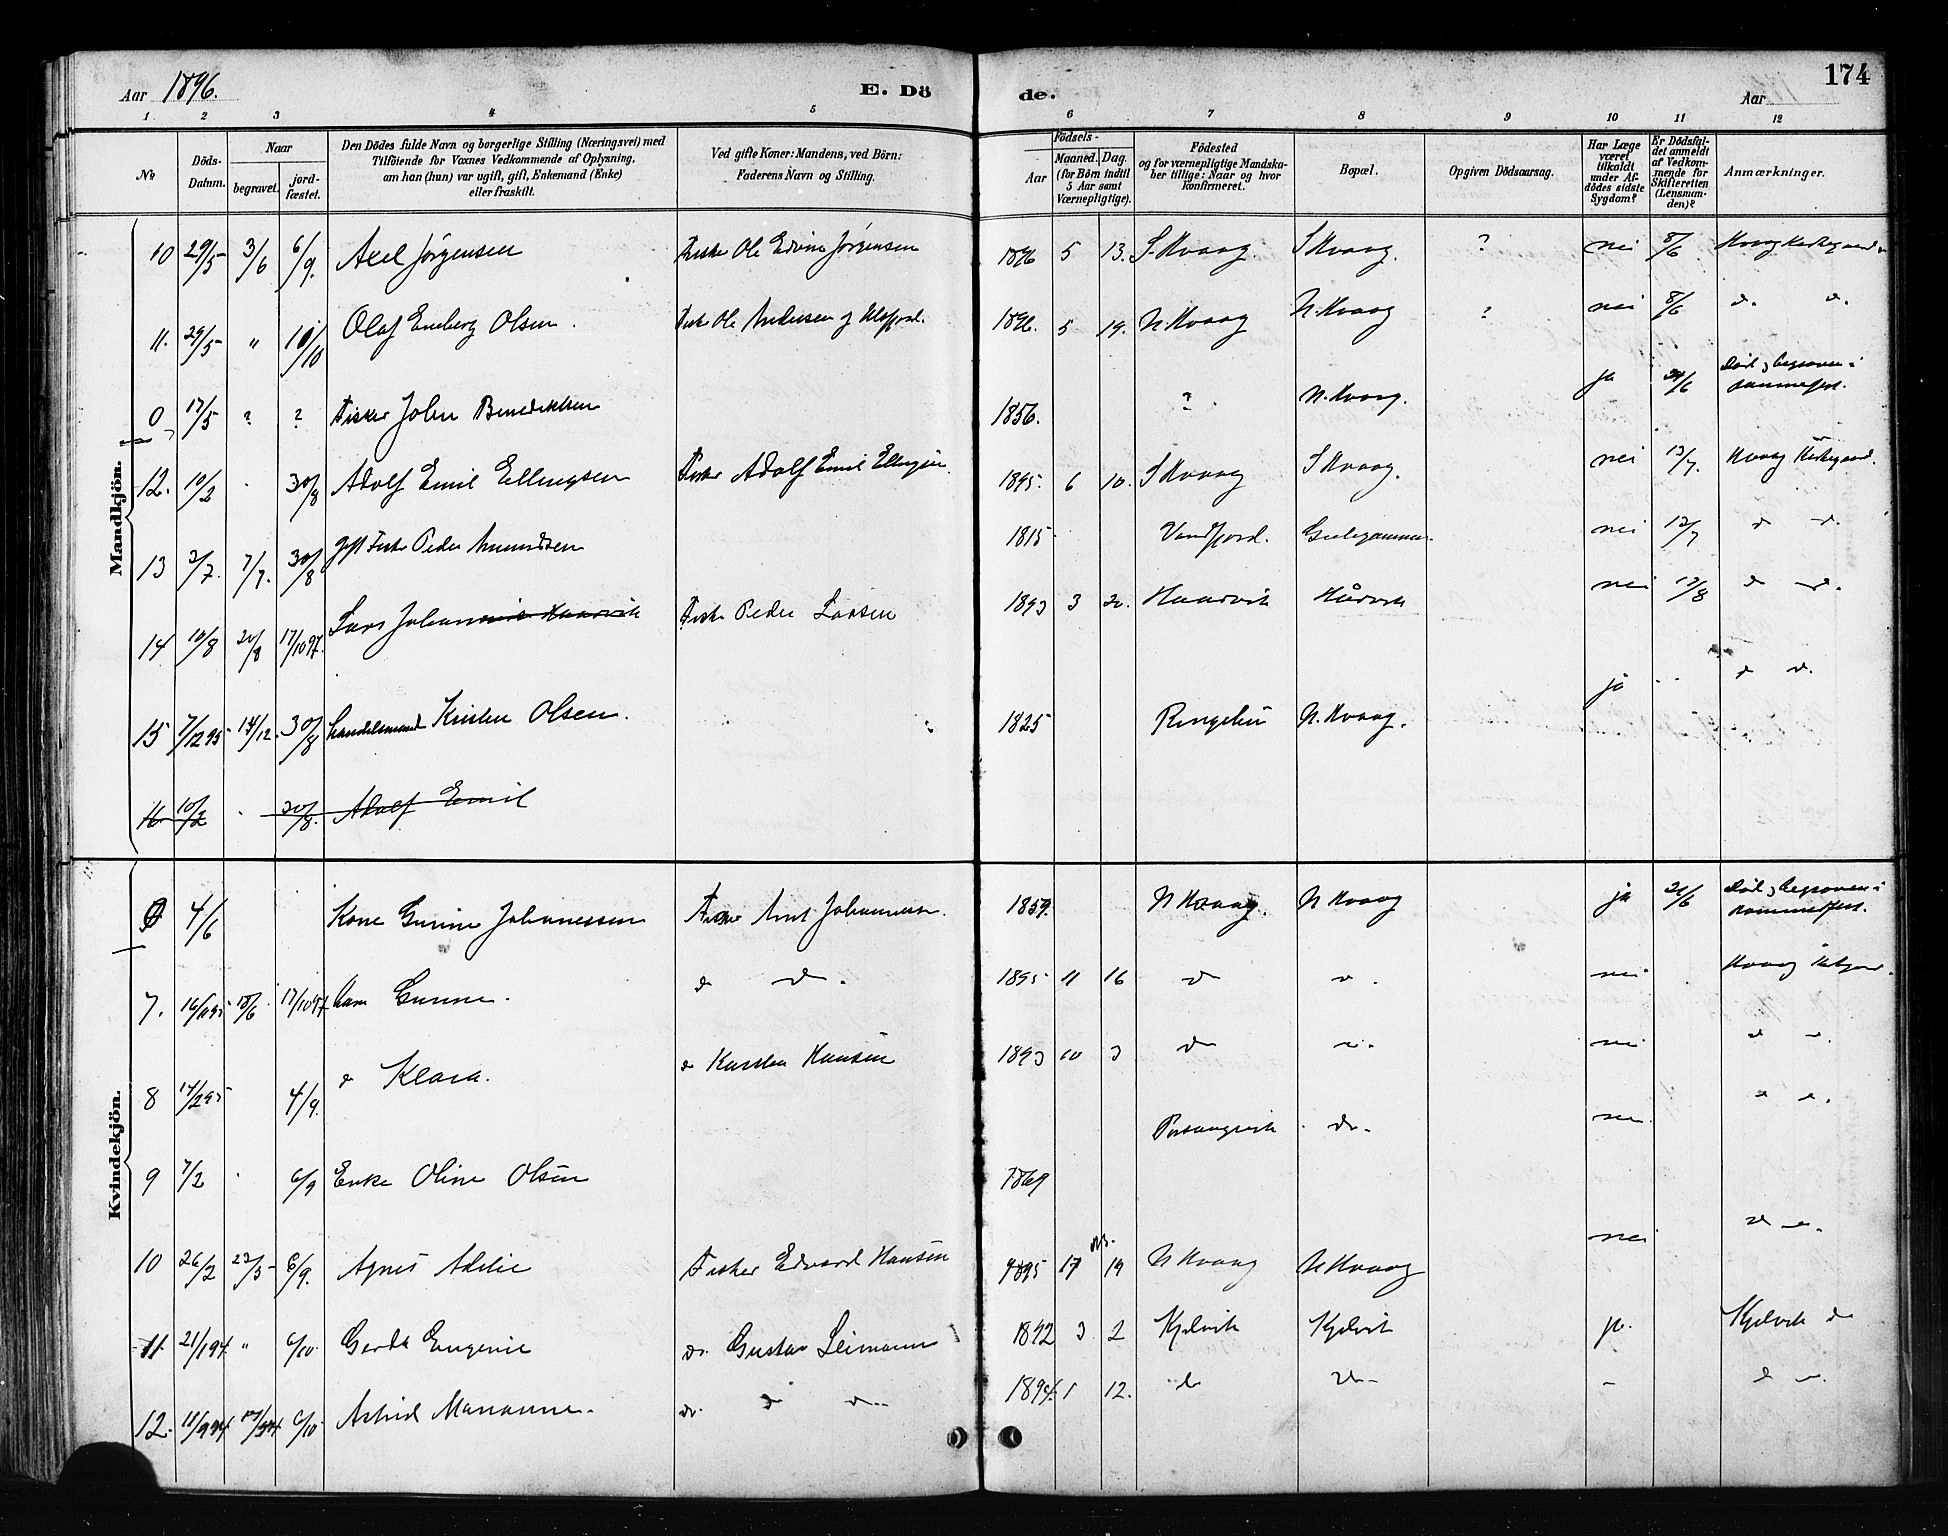 Aar 1896.
E. Dö
de.
174
Aar
1. 2 3 4 5 6 7 8 9 10 11 12
No
Döds-Datum.
Naar
begravet.
jord-fæstet.
Den Dödes fulde Navn og borgerlige Stilling (Næringsvei) med
Tilföiende for Voxnes Vedkommende af Oplysning,
om han (hun) var ugift, gift, Enkemand (Enke)
eller fraskilt.
Ved gifte Koner: Mandens, ved Börn:
Faderens Navn og Stilling.
Födsels-
Aar
Maaned. Dag.
(for Börn indtil
5 Aar samt
Værnepligtige).
Födested
og for værnepligtige Mandska-
ber tillige: Naar og hvor
konfirmeret.
Bopæl.
Opgiven Dödsaarsag.
Har Læge
været
tilkaldt
under Af-
dödes sidste
Sygdom?
Er Dödsfal-
det anmeldt
af Vedkom-
mende for
Skifteretten
(Lensman-
den)?
Anmærkninger.
Mandkjön.
10 29/5 3/6 6/9. Axel Jörgensen Fisker Ole Edvin Jörgensen 1896 5 13. S. Kvaag. S Kvaag. ? nei 8/6 Kvaag Kirkegaard
11. 29/5 " 10/10 Olaf Eneberg Olsen. Fisker Ole Andersen 1896. 5 19. N Kvaag N. Kvaag ? nei 8/6 d. d.
0 17/5 ? ? Fisker John Benediktsen 1856. ?. N. Kvaag. ja 24/6 Död, begraven i Hammerfest.
12. 10/2 30/8 Adolf Emil Ellingsen Fisker Adolf Emil Ellingsen. 1895. 6 10. S Kvaag S Kvaag. nei 13/7. Kvaag Kirkegaard.
13 2/7. 7/7. 30/8 gift Fisker Peder Amundsen 1815 nei 12/7 d d.
14 10/8 20/8 17/10 97. Lars Johan Fisker Peder Larsen 1893 3 20. Haarvik Hårvik nei 13/8 d d.
15 7/12 95 14/12. 30/8 Handelsmand Kristen Olsen. 1825 Ringebu N. Kvaag. ja d d.
16 10/2 30/8. Adolf Emil
Kvindekjön.
0 4/6 Kone Gurine Johannessen Fisker Arnt Johannessen. 1859. N Kvaag. N Kvaag ja 24/6 Död, begraven i Hammerfest.
7. 18/6. 17/10 97. Barn Gurine. d d. 1895 11 16 d d. nei Kvaag
8 4/9. d Klara. d Karsten Hansen 1893 10 3 d nei d d.
9 7/2 6/9 Enke Oline Olsen 1869 Porsangvik. do. nei d d.
10 26/2 23/5 6/9. Agnes Adelie Fisker Edvard Hansen 1895 17 19 N Kvaag N Kvaag nei d d.
11. 21/1 94. " 6/10. Gerda Eugenie do. Gustav Leimann 1892 3 2 Kjelvik Kjelvik ja. Kjelvik d
12. 6/10 Astrid Marianne. do. d d. 1894. 1 12. d d – d d